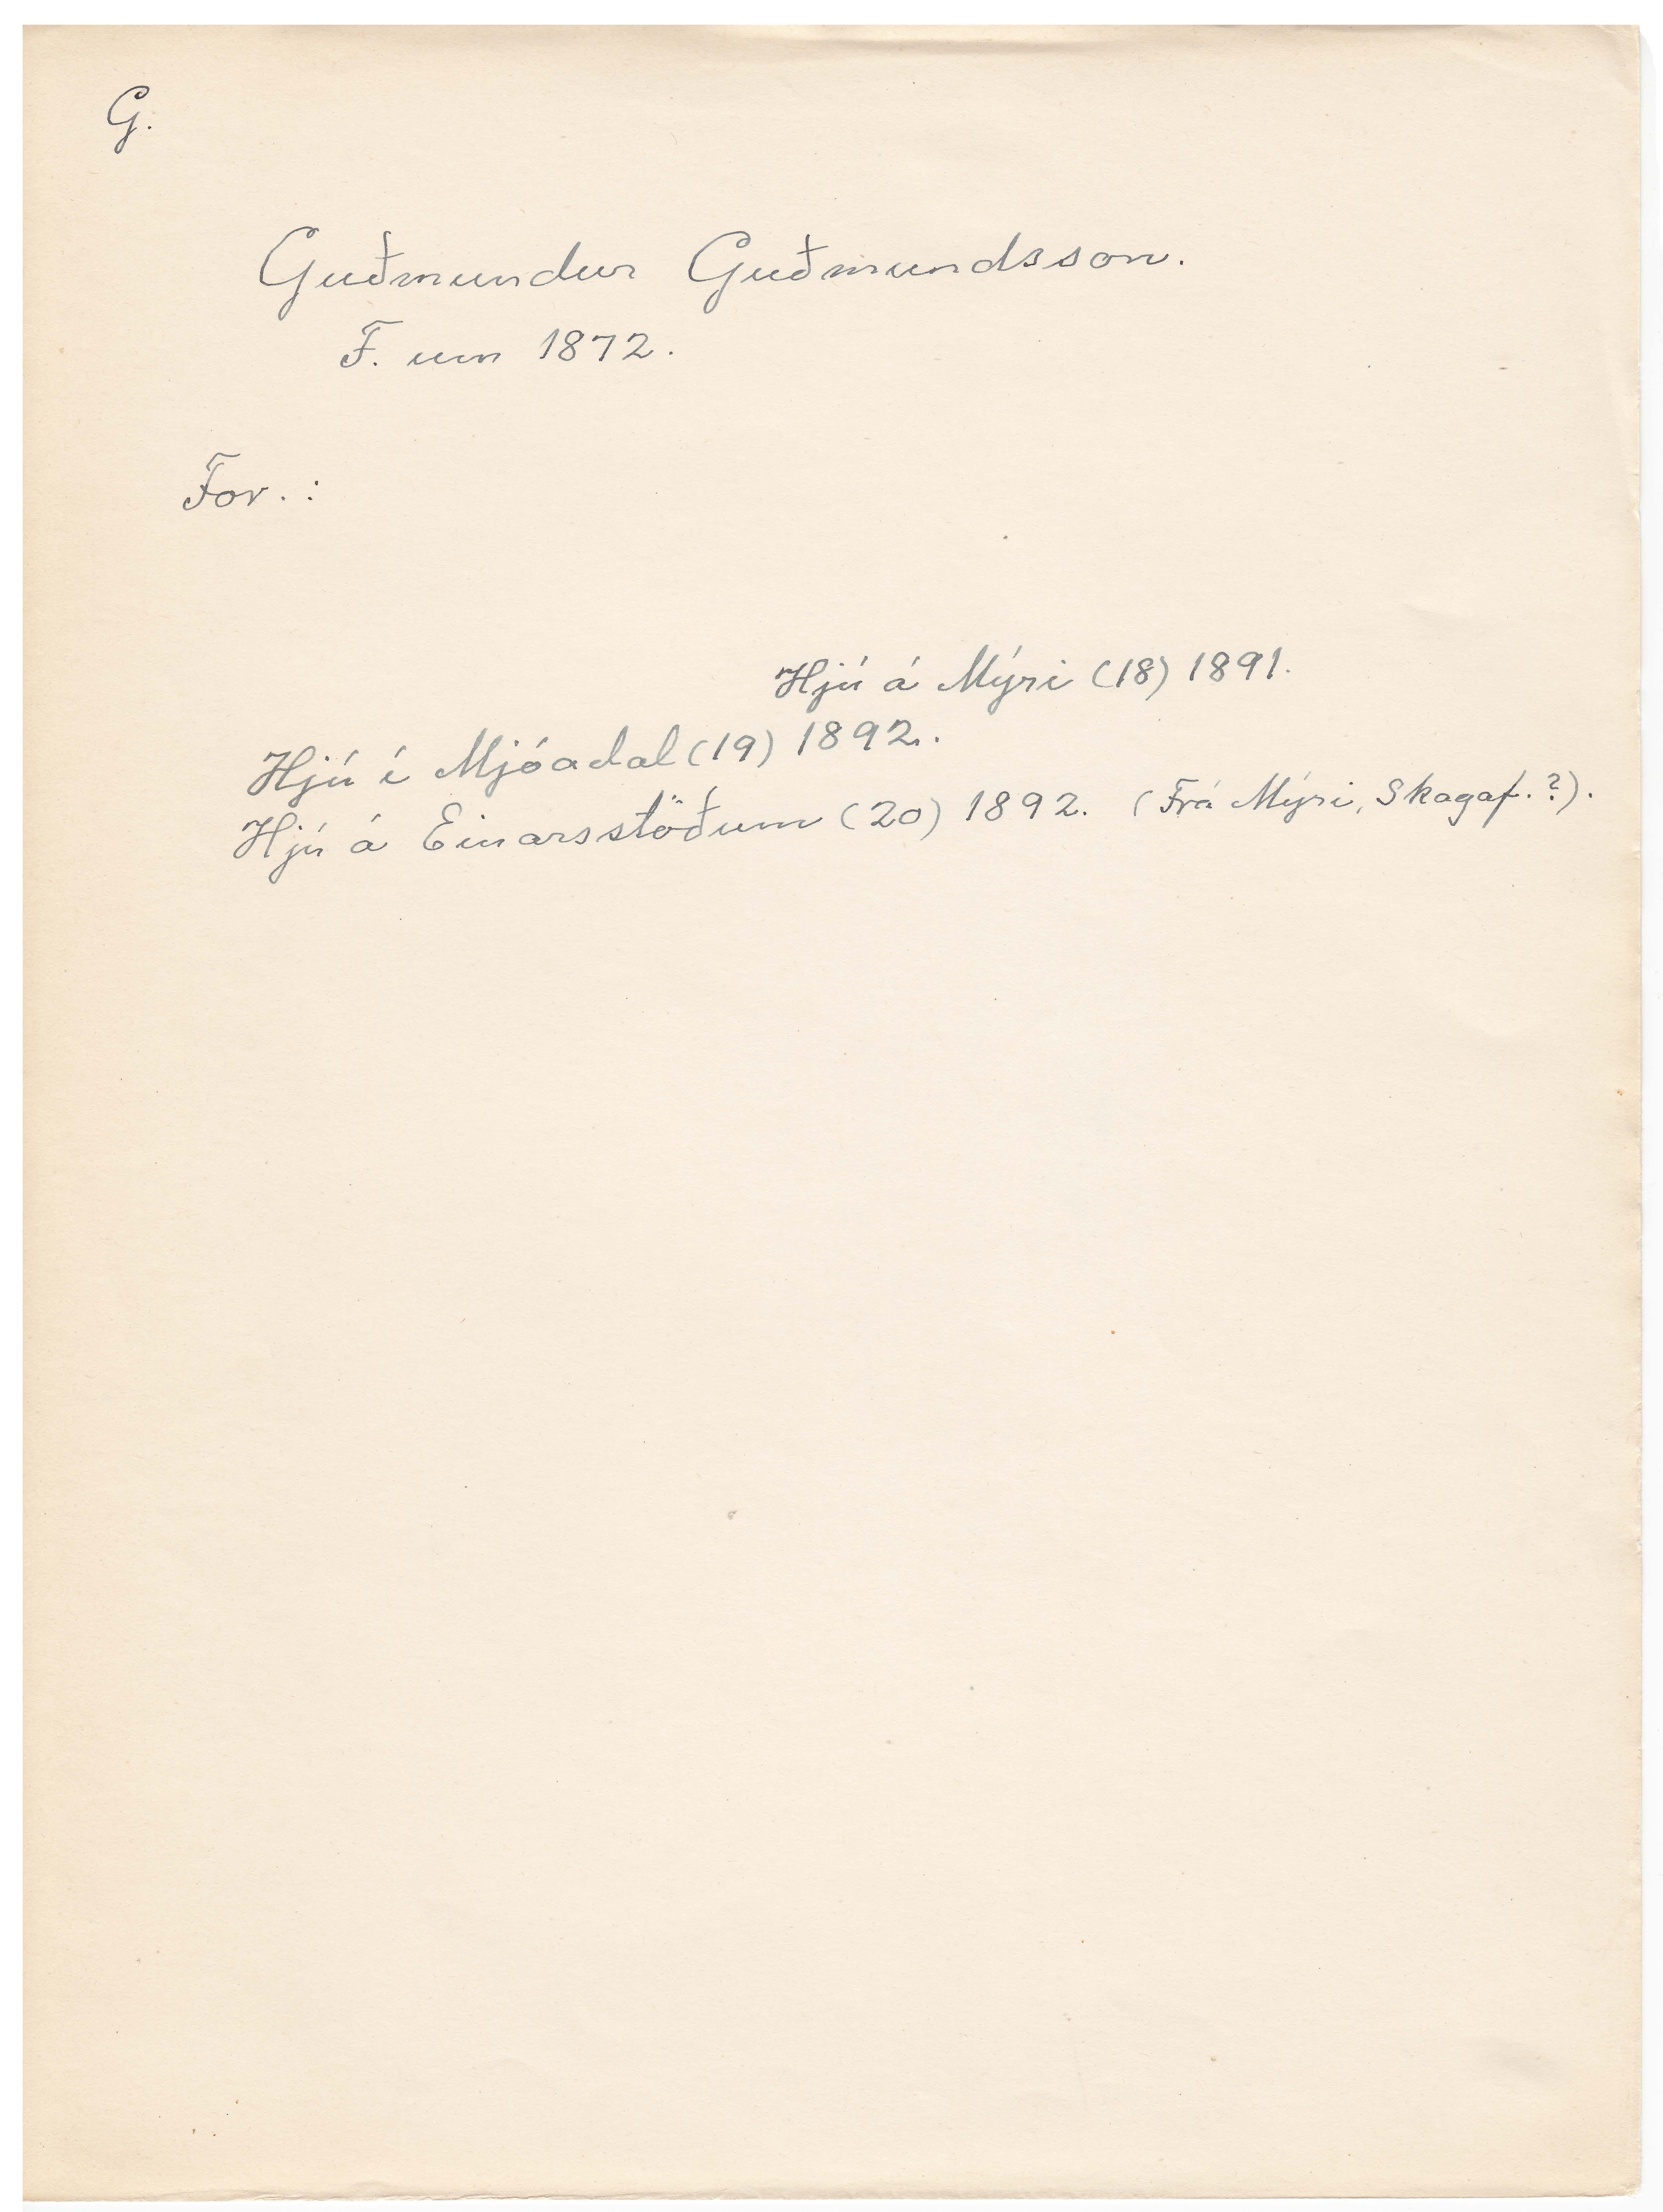 G.
Guðmundur Guðmundsson.
F. um 1872.
For. :
Hjú á Mýri (18) 1891.
Hjú í Mjóadal (19) 1892.
Hjú á Einarsstöðum (20) 1892. (Frá Mýri, Skagaf. ?).